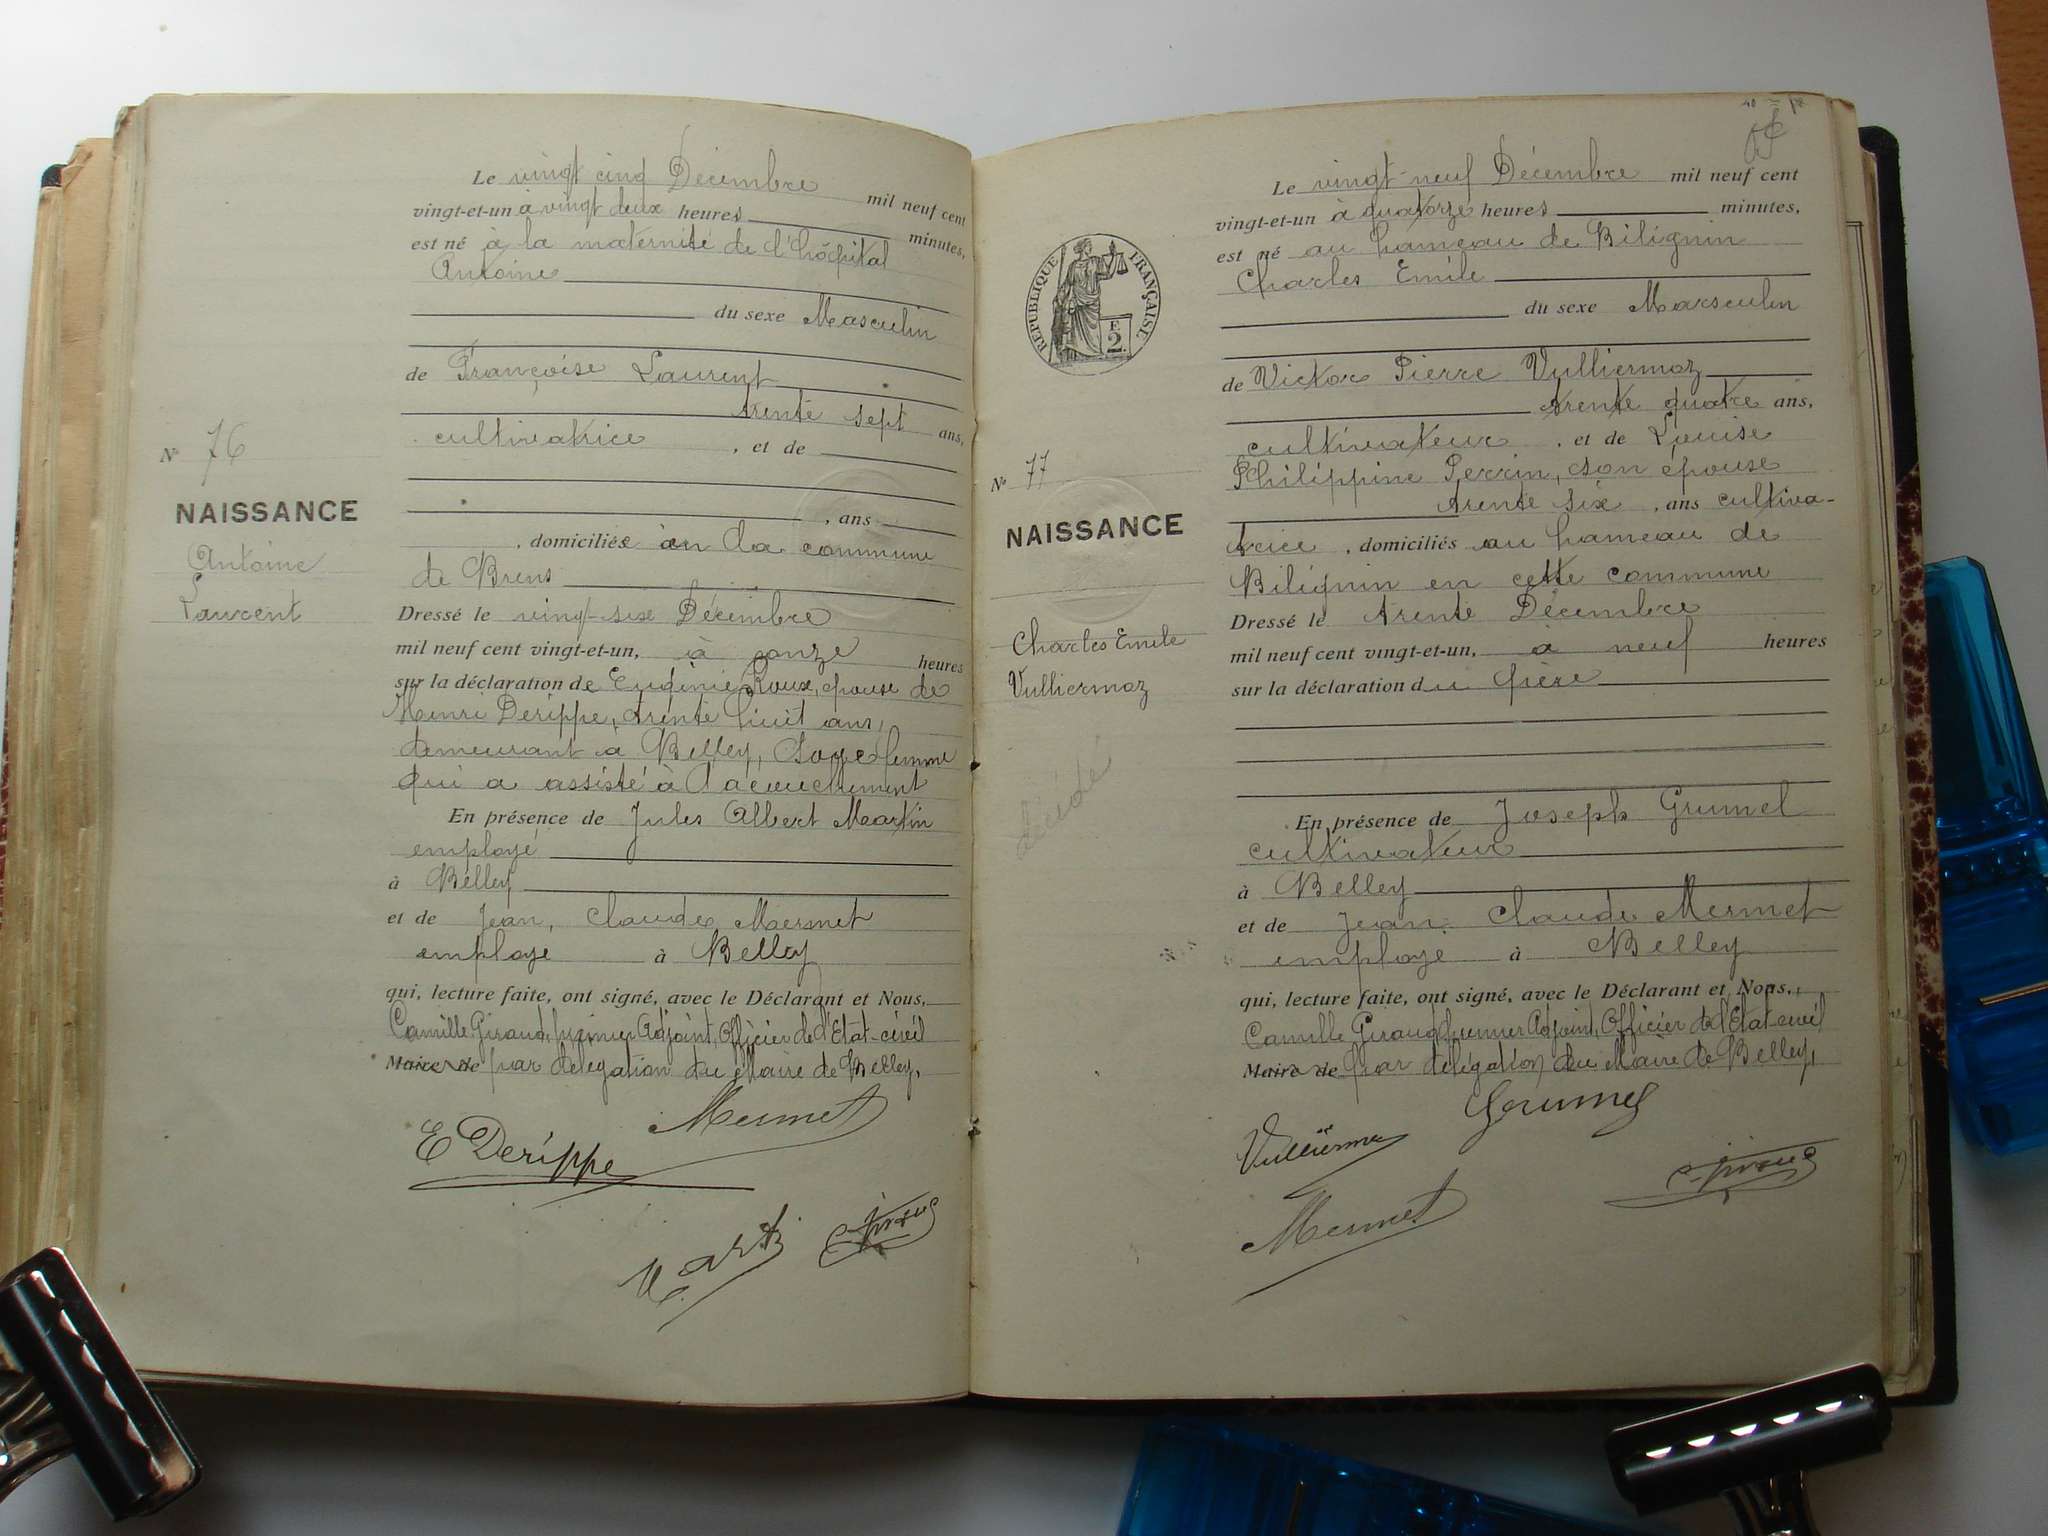 Le vingt cinq Décembre mil neuf cent
vingt-et-un à vingt deux heures minutes,
est né à la maternité de l'hôpital
Antoine
du sexe Masculin
de Françoise Laurent
trente sept ans,
cultivatrice, et de
, ans
, domiciliés en la commune
de Brens
Dressé le vingt-six Décembre
mil neuf cent vingt-et-un, à onze heures
sur la déclaration de Eugénie Roux, épouse de
Henri Derippe, trente huit ans,
demeurant à Belley, Sage femme
qui a assisté à l'acouchement
En présence de Jules Albert Martin
employé
à Belley
et de Jean, Claude Mermet
employe à Belley
qui, lecture faite, ont signé, avec le Déclarant et Nous,
Camille Giraud, premier Adjoint, Officier de l'Etat-civil
Maire de par delegation du Maire de Belley,
Mermet
E Derippe
N° 76
NAISSANCE
Antoine
Laurent
Le vingt-neuf Décembre mil neuf cent
vingt-et-un à quatorze heures minutes,
est né au hameau de Bilignin
Charles Emile
du sexe Marsculin
de Victor Pierre Vulliermoz
trente quatre ans,
cultivateur, et de Louise
Philippine Perrin, son épouse
trente six, ans cultiva-
trice, domiciliés au hameau de
Bilignin en cette commune
Dressé le trente Décembre
mil neuf cent vingt-et-un, à neuf heures
sur la déclaration du père
En présence de Joseph Grumel
cultivateur
à Belley
et de Jean. Claude Mermet
employe à Belley
qui, lecture faite, ont signé, avec le Déclarant et Nous,
Camille Giraud, premier Adjoint, Officier de l'Etat-civil
Maire de par délégation du Maire de Belley,
Grumel
Mermet
RÉPUBLIQUE FRANÇAISE.
E
2
N° 77
NAISSANCE
Charles Emile
Vulliermoz
décédé